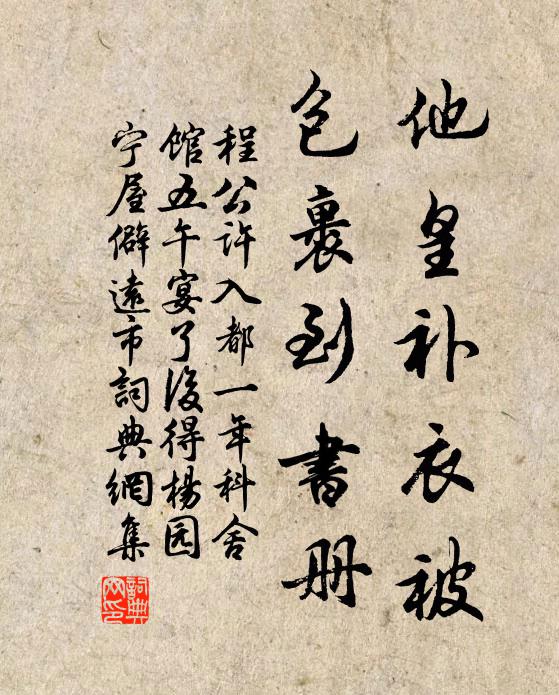 他皇补衣被
包裹到書册
程公许入都一年科舍
馆五午宴了後得楊园
宁屋僻遠市詞典網集
詞典